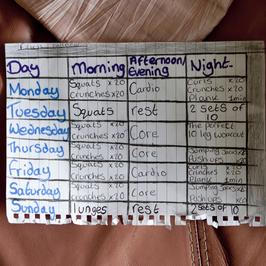 Day Morning Afternoon/ Evening Night.
Monday Squats x20 Crunches x20 Cardio Curls x20 Crunches x20 Plank 1min
Tuesday Squats rest 2 sets of 10
Wednesday Squats x20 Crunches x20 Core The perfect 10 leg workout
Thursday Squats x20 Crunches x20 Core Jumping Jacks x20 Push ups x20
Friday Squats x20 Crunches x20 Cardio Curls x20 Crunches x20 Plank 1min
Saturday Squats x20 Crunches x20 Core Jumping Jacks x20 Push ups x20
Sunday lunges rest 2 sets of 10